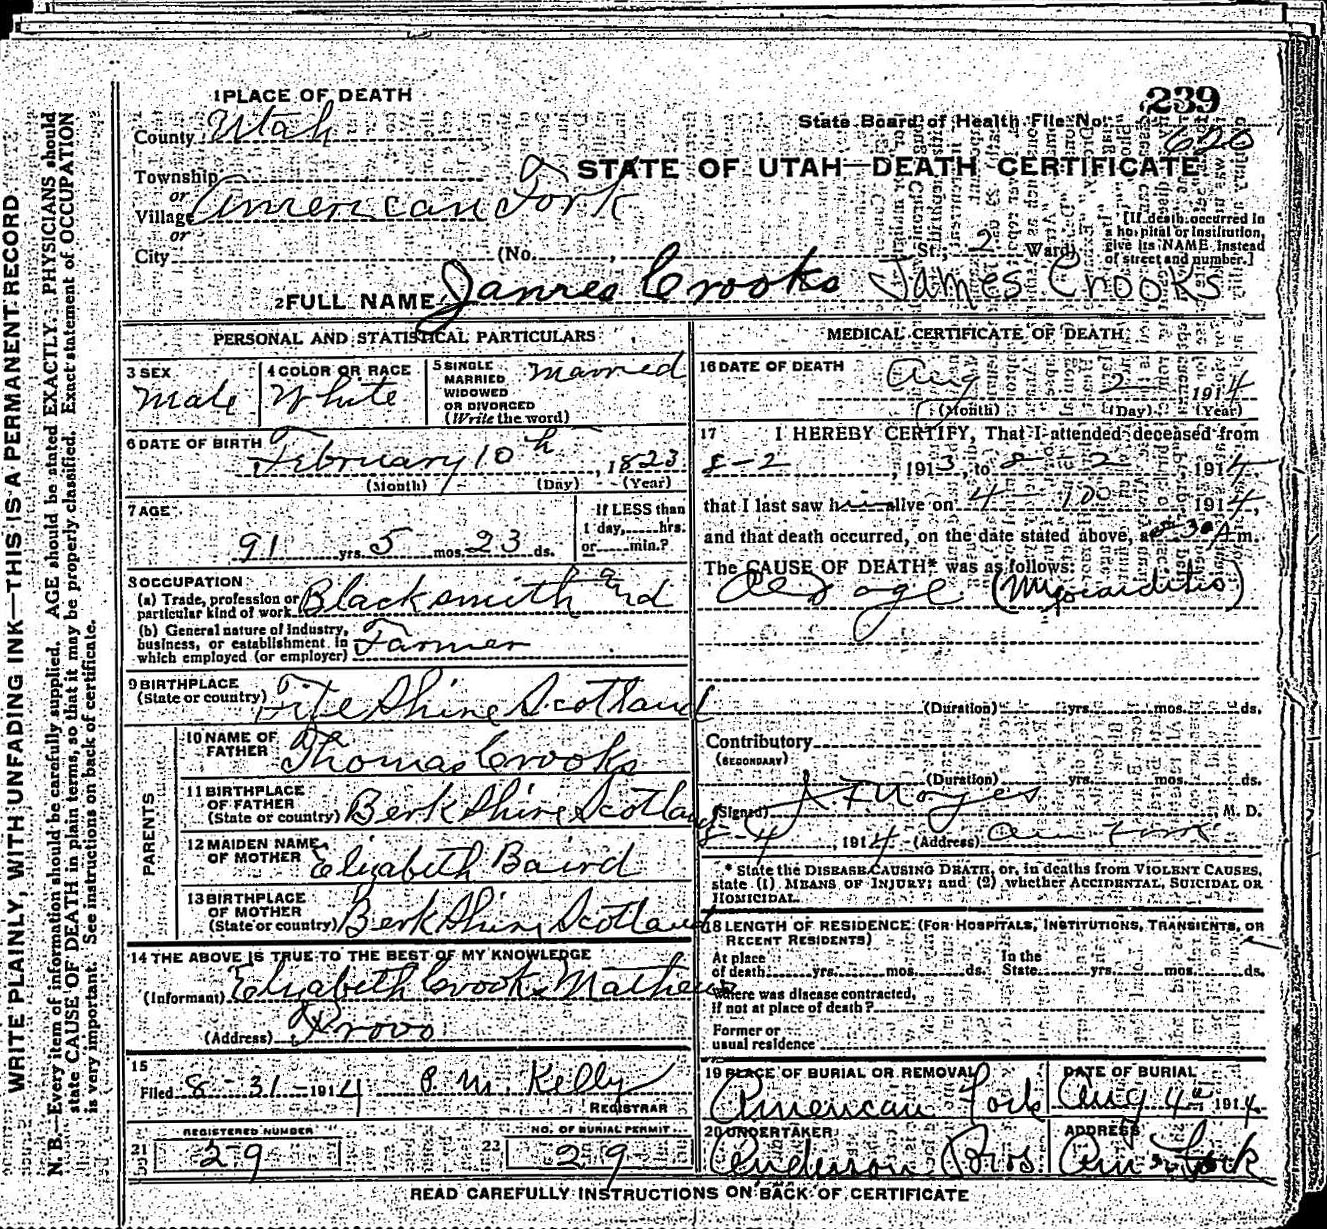 239
1 PLACE OF DEATH
State Board of Health File No. 620
County Utah
STATE OF UTAH—DEATH CERTIFICATE
Township
or
Village American Fork
or
City (No. , St.; 2 Ward)
[If death occurred in a hospital or institution, give its NAME instead of street and number.]
2 FULL NAME James Crooks James Crooks
PERSONAL AND STATISTICAL PARTICULARS
3 SEX Male
4 COLOR OR RACE White
5 SINGLE MARRIED WIDOWED OR DIVORCED (Write the word) Married
6 DATE OF BIRTH February 10th, 1823
(Month) (Day) (Year)
7 AGE 91 yrs. 5 mos. 23 ds.
If LESS than 1 day, hrs. or min.?
8 OCCUPATION
(a) Trade, profession or particular kind of work Blacksmith and
(b) General nature of industry, business, or establishment in which employed (or employer) Farmer
9 BIRTHPLACE (State or country) Fife Shire Scotland
PARENTS
10 NAME OF FATHER Thomas Crooks
11 BIRTHPLACE OF FATHER (State or country) Berk Shire Scotland
12 MAIDEN NAME OF MOTHER Elizabeth Baird
13 BIRTHPLACE OF MOTHER (State or country) Berk Shire Scotland
14 THE ABOVE IS TRUE TO THE BEST OF MY KNOWLEDGE
(Informant) Elizabeth Crooks Mathews
(Address) Provo
15
Filed 8-31-1914 P. M. Kelly
REGISTRAR
21 REGISTERED NUMBER 29
22 NO. OF BURIAL PERMIT 29
MEDICAL CERTIFICATE OF DEATH
16 DATE OF DEATH Aug 2 1914
(Month) (Day) (Year)
17 I HEREBY CERTIFY, That I attended deceased from
8-2, 1913, to 8-2 1914
that I last saw h alive on 4- 1914,
and that death occurred, on the date stated above, at 3 A m.
The CAUSE OF DEATH* was as follows:
Old age (Myocarditis)
(Duration) yrs. mos. ds.
Contributory
(SECONDARY)
(Duration) yrs. mos. ds.
(Signed) Noyes M. D.
8-4, 1914 (Address) Am Fork
* State the DISEASE CAUSING DEATH, or, in deaths from VIOLENT CAUSES, state (1) MEANS OF INJURY; and (2) whether ACCIDENTAL, SUICIDAL OR HOMICIDAL.
18 LENGTH OF RESIDENCE (FOR HOSPITALS, INSTITUTIONS, TRANSIENTS, OR RECENT RESIDENTS)
At place of death yrs. mos. ds. In the State yrs. mos. ds.
Where was disease contracted, if not at place of death?
Former or usual residence
19 PLACE OF BURIAL OR REMOVAL American Fork
DATE OF BURIAL Aug 4th 1914
20 UNDERTAKER Anderson Bros.
ADDRESS Am Fork
READ CAREFULLY INSTRUCTIONS ON BACK OF CERTIFICATE
WRITE PLAINLY, WITH UNFADING INK—THIS IS A PERMANENT RECORD.
N. B.—Every item of information should be carefully supplied. AGE should be stated EXACTLY. PHYSICIANS should
state CAUSE OF DEATH in plain terms, so that it may be properly classified. Exact statement of OCCUPATION
is very important. See instructions on back of certificate.